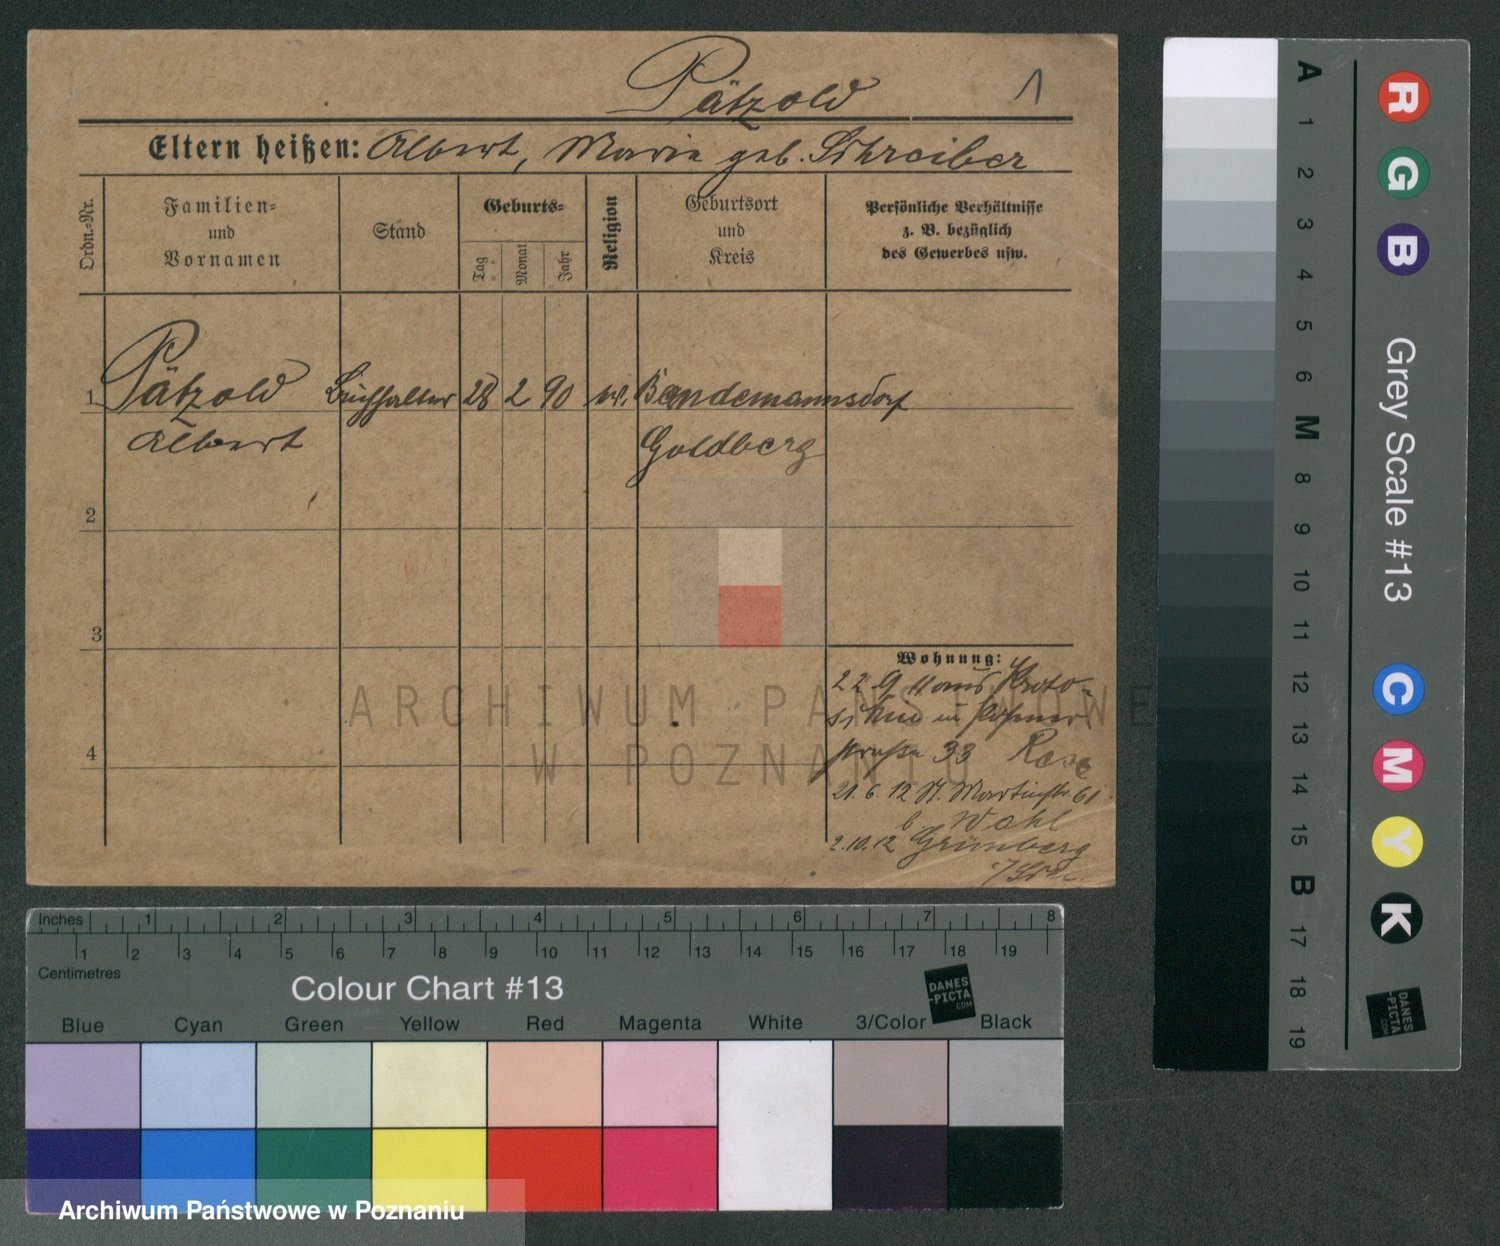 Pätzold 1
Eltern heißen: Albert, Marie geb. Schreiber
Ordn.-Nr.
Familien-
und
Vornamen
Stand
Geburts-
Tag
Monat
Jahr
Religion
Geburtsort
und
Kreis
Persönliche Verhältnisse
z. B. bezüglich
des Gewerbes usw.
1 Pätzold Buchhalter 28 2 90 Bandemannsdorf
Albert Goldberg
2
3
4
Wohnung:
22 9 11 aus Kroto-
33
21. 6. 12 St. Martinstr 61
b. Wahl
2.10.12 Grünberg
ARCHIWUM PAŃSTWOWE
W POZNANIU
Inches 1 2 3 4 5 6 7 8
1 2 3 4 5 6 7 8 9 10 11 12 13 14 15 16 17 18 19
Centimetres
Colour Chart #13
DANES
-PICTA
.COM
Blue Cyan Green Yellow Red Magenta White 3/Color Black
Archiwum Państwowe w Poznaniu
A 1 2 3 4 5 6 M 8 9 10 11 12 13 14 15 B 17 18 19
R G B
Grey Scale #13
C M Y K
DANES
-PICTA
.COM